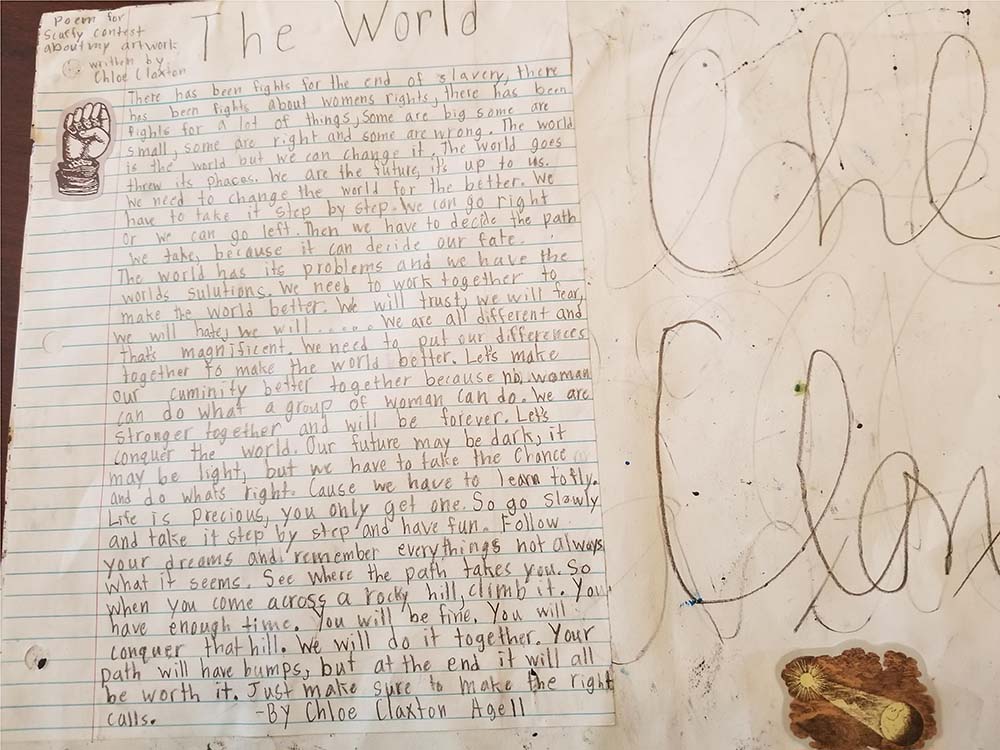 Poem for
Scurfy contest
about my artwork
written by
Chloe Claxton
The World
There has been fights for the end of slavery, there
has been fights about womens rights, there has been
fights for a lot of things, some are big some are
small, some are right and some are wrong. The world
is the world but we can change it. The world goes
threw its phaces. We are the future, it's up to us.
We need to change the world for the better. We
have to take it step by step. We can go right
or we can go left. Then we have to decide the path
we take, because it can decide our fate.
The world has its problems and we have the
worlds sulutions. We need to work together to
make the world better. We will trust, we will fear,
we will hate, we will ..... We are all different and
that's magnificent. We need to put our differences
together to make the world better. Let's make
our cuminity better together because no woman
can do what a group of woman can do. We are
stronger together and will be forever. Let's
conquer the world. Our future may be dark, it
may be light, but we have to take the chance
and do whats right. Cause we have to learn to fly.
Life is precious, you only get one. So go slowly
and take it step by step and have fun. Follow
your dreams and remember everythings not always
what it seems. See where the path takes you. So
when you come across a rocky hill, climb it. You
have enough time. You will be fine. You will
conquer that hill. We will do it together. Your
path will have bumps, but at the end it will all
be worth it. Just make sure to make the right
calls. -By Chloe Claxton Agell